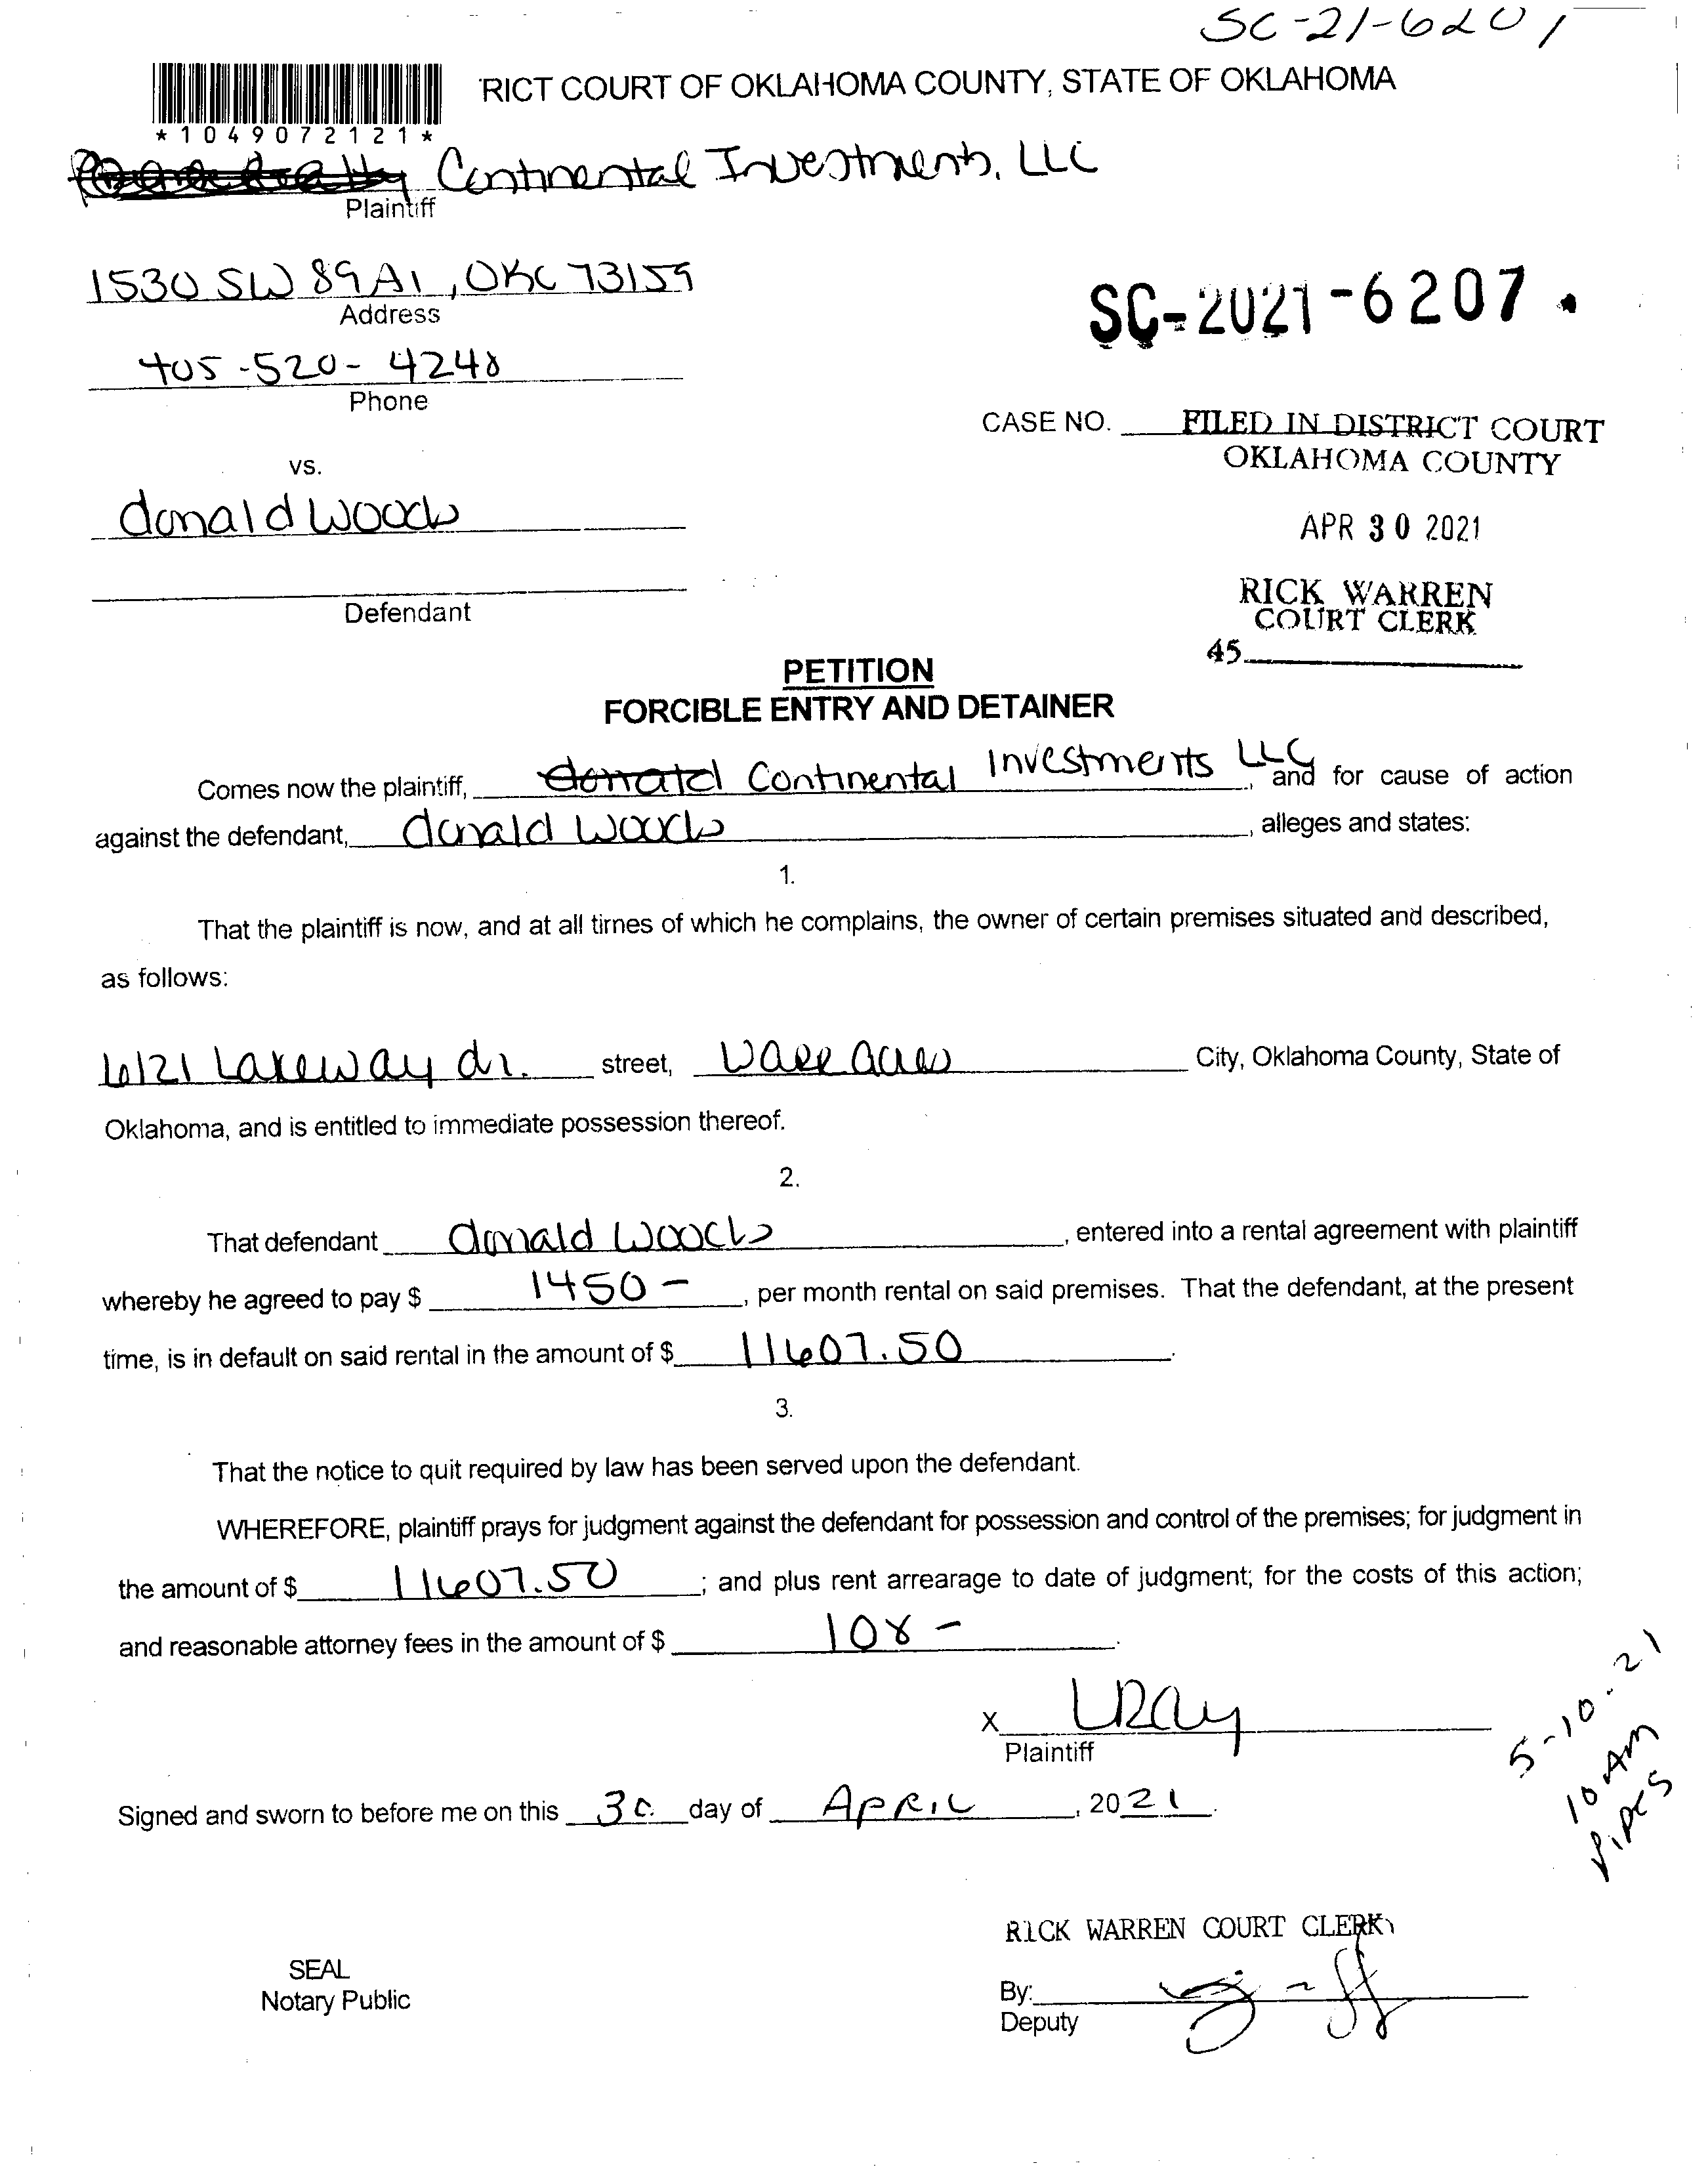 SC-21-6207
RICT COURT OF OKLAHOMA COUNTY, STATE OF OKLAHOMA
*1049072121*
Continental Investments, LLC
Plaintiff
1530 SW 89 A1, OKC 73159
Address
405-520-4248
Phone
SC-2021-6207
CASE NO. FILED IN DISTRICT COURT
OKLAHOMA COUNTY
vs.
donald woods
APR 30 2021
Defendant
RICK WARREN
COURT CLERK
45
PETITION
FORCIBLE ENTRY AND DETAINER
Comes now the plaintiff, donald Continental Investments LLC, and for cause of action
against the defendant, donald woods, alleges and states:
1.
That the plaintiff is now, and at all times of which he complains, the owner of certain premises situated and described,
as follows:
6121 Lakeway dr. street, Warr acres City, Oklahoma County, State of
Oklahoma, and is entitled to immediate possession thereof.
2.
That defendant donald woods, entered into a rental agreement with plaintiff
whereby he agreed to pay $ 1450 -, per month rental on said premises. That the defendant, at the present
time, is in default on said rental in the amount of $ 11607.50.
3.
That the notice to quit required by law has been served upon the defendant.
WHEREFORE, plaintiff prays for judgment against the defendant for possession and control of the premises; for judgment in
the amount of $ 11607.50; and plus rent arrearage to date of judgment; for the costs of this action;
and reasonable attorney fees in the amount of $ 108 -.
x LRay
Plaintiff
5-10-21
10 AM
Signed and sworn to before me on this 30 day of APRIL, 2021.
RICK WARREN COURT CLERK
SEAL
Notary Public
By:
Deputy